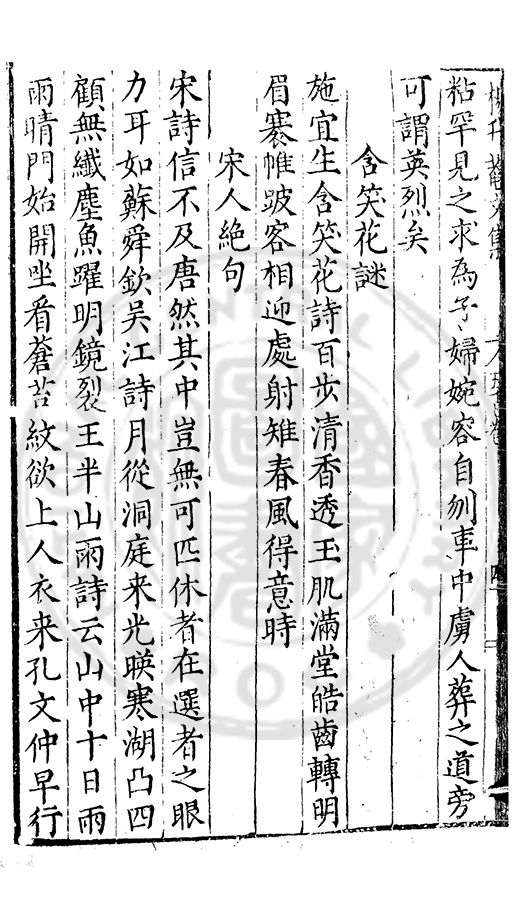 粘罕見之求為子婦婉容自刎車中虜人葬之道旁
可謂英烈矣
含笑花謎
施宜生含笑花詩百步清香透玉肌滿堂皓齒轉明
眉褰帷跛客相迎處射雉春風得意時
宋人絶句
宋詩信不及唐然其中豈無可匹休者在選者之眼
力耳如蘇舜欽吴江詩月從洞庭来光暎寒湖凸四
顧無纖塵魚躍明鏡裂王半山雨詩云山中十日雨
雨晴門始開坐看蒼苔紋欲上人衣来孔文仲早行